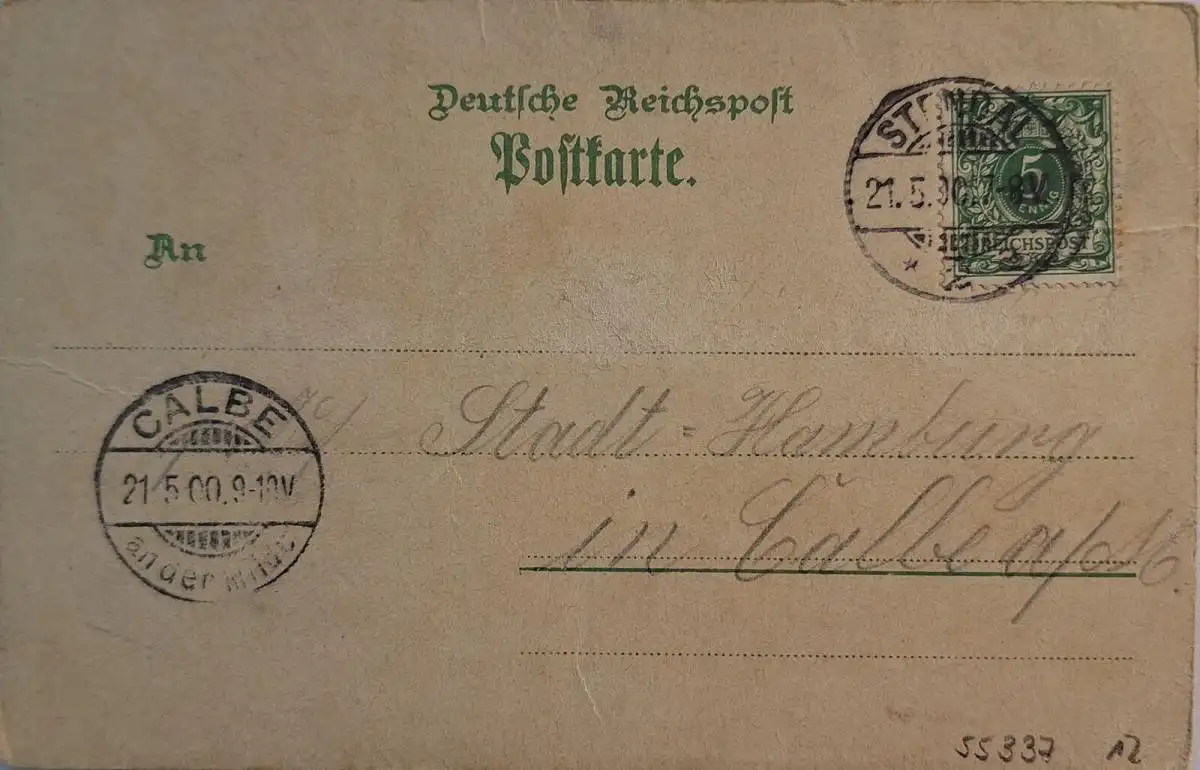 Deutsche Reichspost
Postkarte.
An
STENDAL
21.5.00.7-8V
5
PFENNIG
REICHSPOST
CALBE
21.5.00.9-10V
an der Milde
Stadt=Hamburg
in Calbe a/M.
55337 12